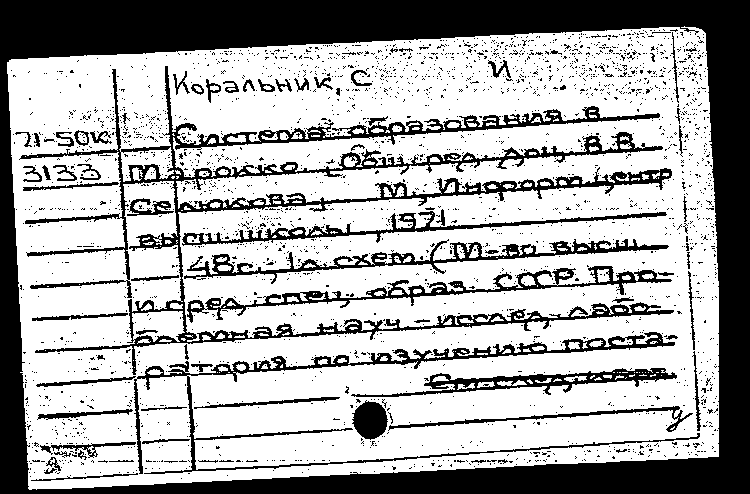 Коральник, С И
71-50к Система образования в
3133 Марокко. Общ. ред. доц. В.В.
Селюкова, М., Информ.центр
высш. школы, 1971.
48с., 1л.схем. (М-во высш.
и сред. спец. образ. СССР. Про-
блемная науч.-исслед. лабо-
ратория по изучению поста-
См.след.карт.